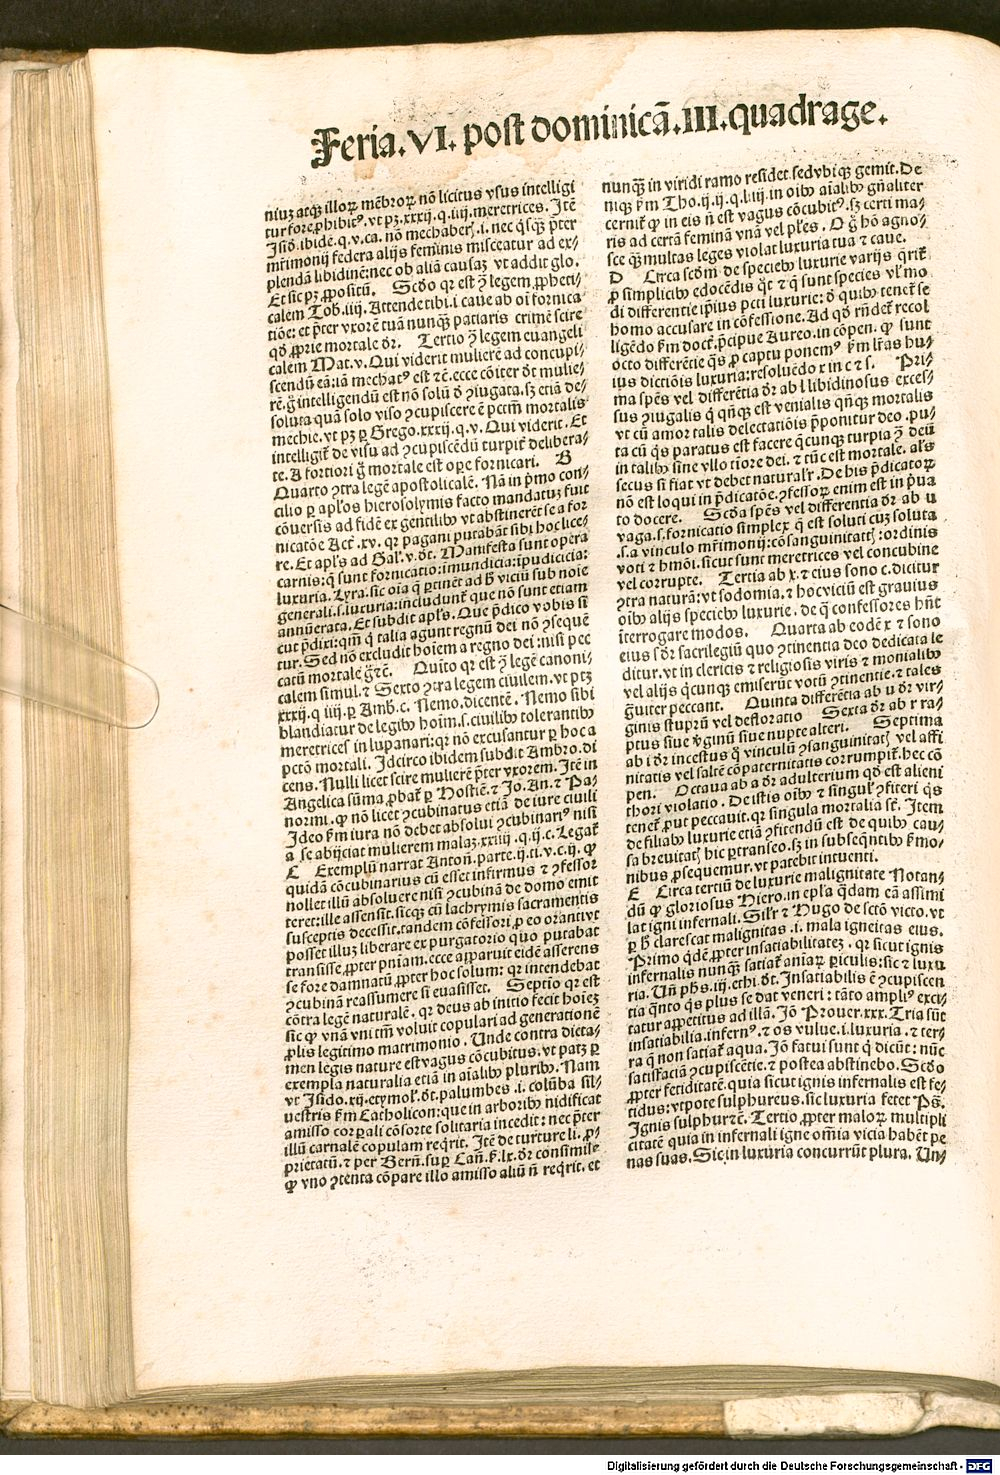 Feria.VI. post dominicã.III.quadrage.
niuȝ atqꝫ illoꝝ mẽbroꝝ nõ licitus vsus intelligi
tur fore ꝓhibitꝰ.vt pȝ.xxxij.q.iiij.meretrices. Itẽ
Isid.ibidẽ.q.v.ca. nõ mechaberꝭ.i. nec qͥsqꝫ p̃ter
mr̃imonij federa alijs feminis misceatur ad ex/
plendã libidinẽ:nec ob aliã causaȝ vt addit glo.
Et sic pȝ ꝓpositũ. Scd̃o qꝛ est ꝯ̃ legem ꝓpheti/
calem Tob.iiij. Attende tibi.i caue ab oĩ fornica
tiõe: et p̃ter vxorẽ tuã nunqꝫ patiaris crimẽ scire
qd̃ ꝓprie mortale dr̃. Tertio ꝯ̃ legem euangeli
calem Mat.v. Qui viderit mulierẽ ad concupi/
scendũ eã:iã mechatꝰ est ⁊c̃.ecce cõiter õt mulie/
rẽ.g̃ intelligendũ est nõ solũ õ ꝯiugata.sȝ etiã de
soluta quã solo viso ꝯcupiscere ẽ pctm̃ mortalis
mechie.vt pȝ ꝑ Grego.xxxij.q.v. Qui viderit. Et
intelligit̃ de visu ad ꝯcupiscẽdũ turpit̃ delibera/
te. A fortiori g̃ mortale est oꝑe fornicari. B
Quarto ꝯtra legẽ apostolicalẽ. Nã in p̃mo con/
cilio ꝑ apl̃os hierosolymis facto mandatuȝ fuit
cõuersis ad fidẽ ex gentilibꝰ vt abstinerẽt se a for
nicatõe Act̃.xv. qꝛ pagani putabãt sibi hoc lice/
re. Et apl̃s ad Gal̃.v.õt. Manifesta sunt opera
carnis:q̃ sunt fornicatio:imundicia:ĩpudicicia:
luxuria. Lyra. sic oĩa q̃ ꝑtinẽt ad h̃ viciũ sub noĩe
generali.s.luxuria:includunt̃ que nõ sunt etiam
annũerata. Et subdit apl̃s. Que p̃dico vobis si
cut p̃dixi:qm̃ q̃ talia agunt regnũ dei nõ ꝯsequẽ
tur. Sed nõ excludit hoĩem a regno dei :nisi pec
catũ mortale g̃ ⁊c̃. Quĩto qꝛ est ꝯ̃ legẽ canoni/
calem simul.⁊ Sexto ꝯtra legem ciuilem.vt ptȝ
xxxij.q iiij.ꝑ Amb̃.c. Nemo.dicentẽ. Nemo sibi
blandiatur de legibꝰ hoĩm.s.ciuilibꝰ tolerantibꝰ
meretrices in lupanari:qꝛ nõ excusantur ꝑ hoc a
pctõ mortali. Idcirco ibidem subdit Ambro.di
cens. Nulli licet scire mulierẽ p̃ter vxorem. Itẽ in
Angelica sũma ꝓbat̃ ꝑ Hostiẽ.⁊ Jo.An.⁊ Pa/
normi. ꝙ nõ licet ꝯcubinatus etiã de iure ciuili
Ideo km̃ iura nõ debet absolui ꝯcubinariꝰ nisi
a se abijciat mulierem malaȝ.xxiiij.q.ij.c. Legat̃
C Exemplũ narrat Antoñ.parte.ij.ti.v.c.ij. ꝙ
quidã cõcubinarius cũ esset infirmus ⁊ ꝯfessor
nollet illũ absoluere nisi ꝯcubinã de domo emit
teret:ille assensit.sicqꝫ cũ lachrymis sacramentis
susceptis decessit.tandem cõfessori ꝓ eo orantivt
posset illuȝ liberare ex purgatorio quo putabat
transisse ꝓpter pniam.ecce apparuit eidẽ asserens
se fore damnatũ ꝓpter hoc solum: qꝛ intendebat
ꝯcubinã reassumere si euasisset. Septĩo qꝛ est
cõtra legẽ naturalẽ. qꝛ deus ab initio fecit hoĩeȝ
sic ꝙ vnã vni tm̃ voluit copulari ad generationẽ
ꝓlis legitimo matrimonio. Unde contra dicta/
men legis nature est vagus cõcubitus.vt patȝ ꝑ
exempla naturalia etiã in aĩalibꝰ pluribꝰ. Nam
vt Isido.xij.etymol̃.õt.palumbes.i. colũba sil/
uestris km̃ Catholicon:que in arboribꝰ nidificat
amisso corꝑali cõsorte solitaria incedit: nec p̃ter
illũ carnalẽ copulam reqͥrit. Itẽ de turture li. ꝓ/
prietatũ.⁊ per Berñ.suꝑ Cañ.km̃.lx.dr̃ consimile
ꝙ vno ꝯtenta cõpare illo amisso aliũ ñ reqͥrit. et
nunqꝫ in viridi ramo residet sedvbiqꝫ gemit. De
niqꝫ km̃ Tho.ij.ij.q.liiij.in oĩbꝰ aĩalibꝰ gñaliter
cernit̃ ꝙ in eis ñ est vagus cõcubitꝰ.sȝ certi ma/
ris ad certã feminã vnã vel pl̃es. O g̃ hõ agno/
sce qꝫ multas leges violat luxuria tua ⁊ caue.
D Circa scd̃m de speciebꝰ luxurie varijs qͥrit̃
ꝓ simplicibꝰ edocẽdis qͨt ⁊ q̃ sunt species vl̃ mo
di differentie ip̃ius pcti luxurie: õ quibꝰ tenet̃ se
homo accusare in cõfessione. Ad qd̃ rñdet̃ recol
ligẽdo km̃ doct̃.p̃cipue Aureo.in cõpen. ꝙ sunt
octo differẽtie q̃s ꝓ captu ponemꝰ km̃ lr̃as hu/
ius dictiõis luxuria:resoluẽdo x in c ⁊ s. Pri/
ma spẽs vel differẽtia dr̃ ab l libidinosus exces/
sus ꝯiugalis q̃ qñqꝫ est venialis qñqꝫ mortalis
vt cũ amor talis delectatiõis p̃ponitur deo .pu/
ta cũ qͥs paratus est facere q̃cunqꝫ turpia ꝯ̃ deũ
in talibꝰ sine vllo tĩore dei.⁊ tũc est mortale. al̃s
secus si fiat vt debet natural̃r. De his p̃dicatoꝝ
nõ est loqui in p̃dicatõe.ꝯfessoꝝ enim est in p̃ua
to docere. Scd̃a spẽs vel differentia dr̃ ab u
vaga.s.fornicatio simplex q̃ est soluti cuȝ soluta
.s.a vinculo mr̃imonij:cõsanguinitatꝭ :ordinis
voti ⁊ hmõi.sicut sunt meretrices vel concubine
vel corrupte. Tertia ab x.⁊ eius sono c.dicitur
ꝯtra naturã:vt sodomia.⁊ hoc viciũ est grauius
oĩbꝰ alijs speciebꝰ luxurie. de q̃ confessores hñt
ĩterrogare modos. Quarta ab eodẽ x ⁊ sono
eius s dr̃ sacrilegiũ quo ꝯtinentia deo dedicata le
ditur.vt in clericis ⁊ religiosis viris ⁊ monialibꝰ
vel alijs q̃cunqꝫ emiserũt votũ ꝯtinentie.⁊ tales
g̃uiter peccant. Quinta differẽtia ab u dr̃ vir/
ginis stuprũ vel defloratio Sexta dr̃ ab r ra/
ptus siue v̓ginũ siue nupte alteri. Septima
ab i dr̃ incestus q̃ vinculũ ꝯsanguinitatꝭ vel affi
nitatis vel saltẽ cõpaternitatis corrumpit̃.hec cõ
pen. Octaua ab a dr̃ adulterium qd̃ est alieni
thori violatio. De istis oĩbꝰ ⁊ singul̃ ꝯfiteri qͥs
tenet̃ ꝓut peccauit.qꝛ singula mortalia st̃. Item
de filiabꝰ luxurie etiã ꝯfitendũ est de quibꝰ cau/
sa breuitatꝭ hic ꝑtranseo.sȝ in subseqñtibꝰ km̃o/
nibus ꝓsequemur.vt patebit intuenti.
E Circa tertiũ de luxurie malignitate Notan/
dũ ꝙ gloriosus Hiero.in epl̃a q̃dam eã assimi
lat igni infernali. Sil̃r ⁊ Hugo de sctõ victo. vt
ꝑ h̃ clarescat malignitas .i. mala igneitas eius.
Primo qd̃ẽ ꝓpter insatiabilitateȝ . qꝛ sicut ignis
infernalis nunqꝫ satiat̃ aniaꝝ ꝑiculis: sic ⁊ luxu
ria. Uñ ph̃s.iij.ethi.õt. Insatiabilis ẽ ꝯcupiscen
tia qͣnto qͥs plus se dat veneri: tãto ampliꝰ exci/
tatur appetitus ad illã. Jõ Prouer.xxx. Tria sũt
insatiabilia.infernꝰ.⁊ os vulue.i.luxuria.⁊ ter/
ra q̃ non satiat̃ aqua. Jõ fatui sunt q̃ dicũt: nũc
satisfaciã ꝯcupiscẽtie.⁊ postea abstinebo. Scd̃o
ꝓpter fetiditatẽ.quia sicut ignis infernalis est fe/
tidus:vtpote sulphureus.sic luxuria fetet Ps̃.
Ignis sulphur⁊c̃. Tertio ꝓpter maloꝝ multipli
citatẽ quia in infernali igne om̃ia vicia habẽt pe
nas suas. Sic in luxuria concurrũt plura. Un/
Digitalisierung gefördert durch die Deutsche Forschungsgemeinschaft - DFG